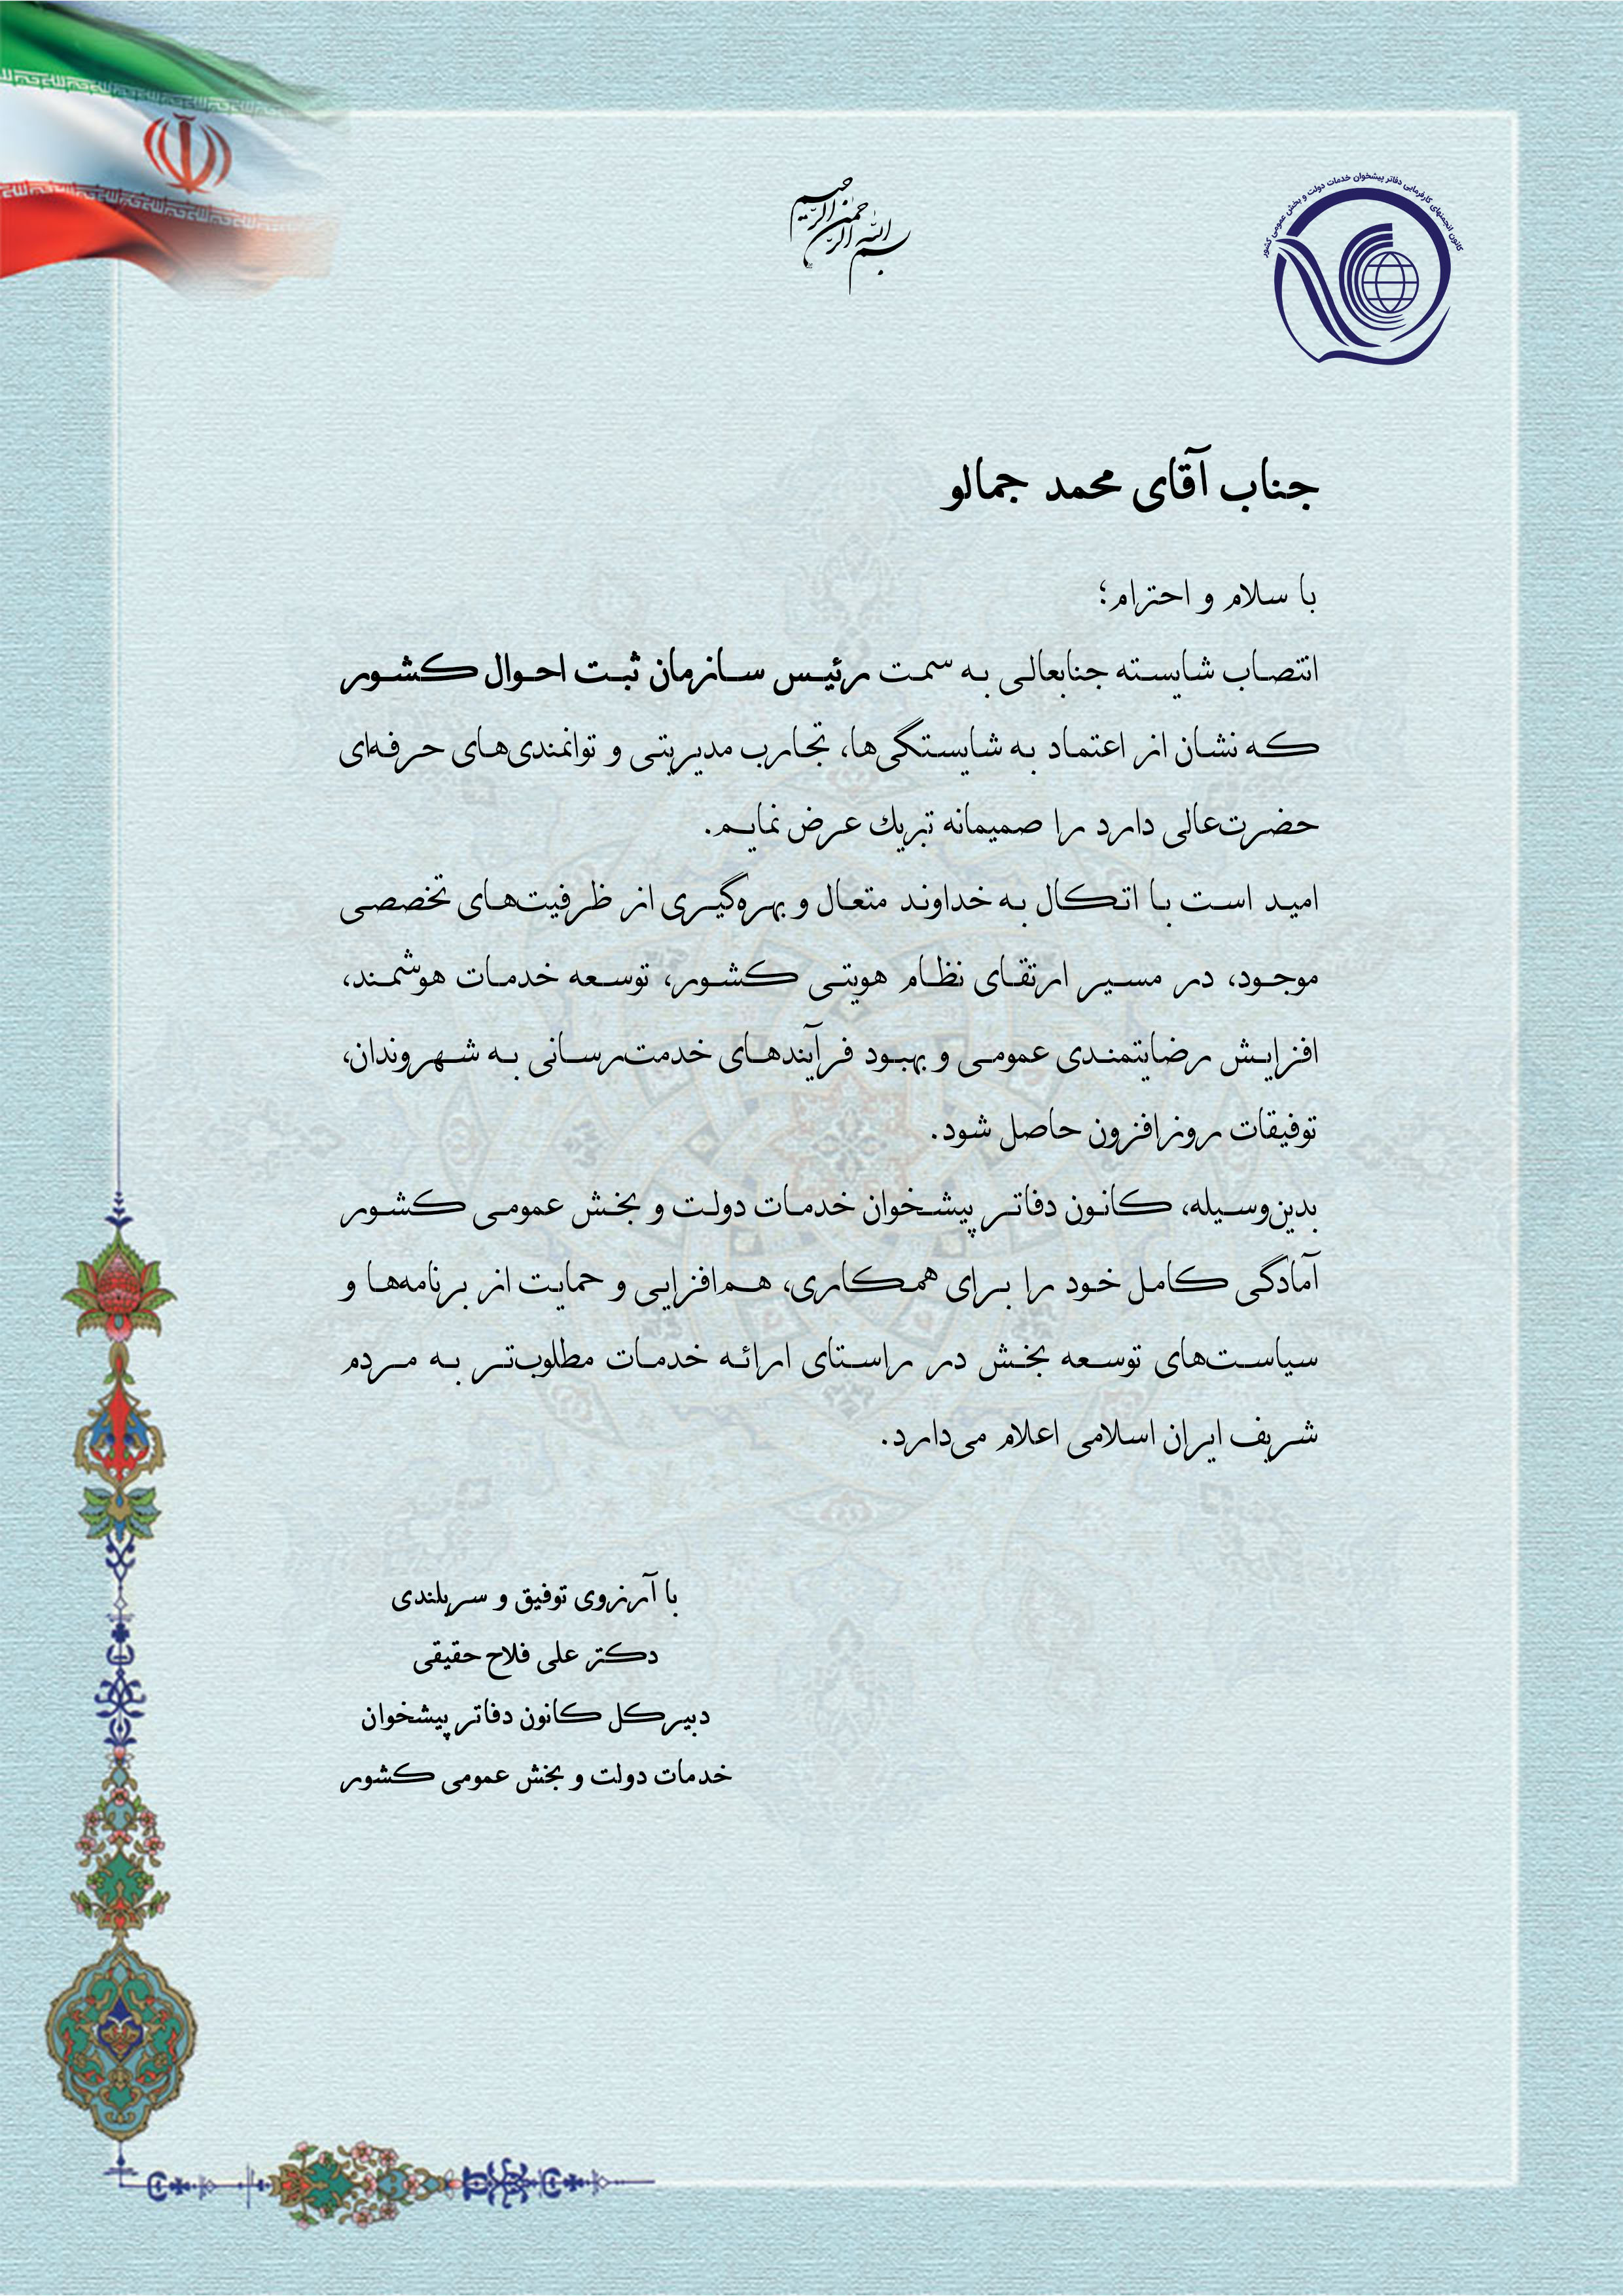 کانون انجمنهای کارفرمایی دفاتر پیشخوان خدمات دولت و بخش عمومی کشور
بسم الله الرحمن الرحیم
جناب آقای محمد جمالو
با سلام و احترام؛
انتصاب شایسته جنابعالی به سمت رئیس سازمان ثبت احوال کشور
که نشان از اعتماد به شایستگی‌ها، تجارب مدیریتی و توانمندی‌های حرفه‌ای
حضرت‌عالی دارد را صمیمانه تبریك عرض نمایم.
امید است با اتکال به خداوند متعال و بهره‌گیری از ظرفیت‌های تخصصی
موجود، در مسیر ارتقای نظام هویتی کشور، توسعه خدمات هوشمند،
افزایش رضایتمندی عمومی و بهبود فرآیندهای خدمت‌رسانی به شهروندان،
توفیقات روزافزون حاصل شود.
بدین‌وسیله، کانون دفاتر پیشخوان خدمات دولت و بخش عمومی کشور
آمادگی کامل خود را برای همکاری، هم‌افزایی و حمایت از برنامه‌ها و
سیاست‌های توسعه بخش در راستای ارائه خدمات مطلوب‌تر به مردم
شریف ایران اسلامی اعلام می‌دارد.
با آرزوی توفیق و سربلندی
دکتر علی فلاح حقیقی
دبیرکل کانون دفاتر پیشخوان
خدمات دولت و بخش عمومی کشور